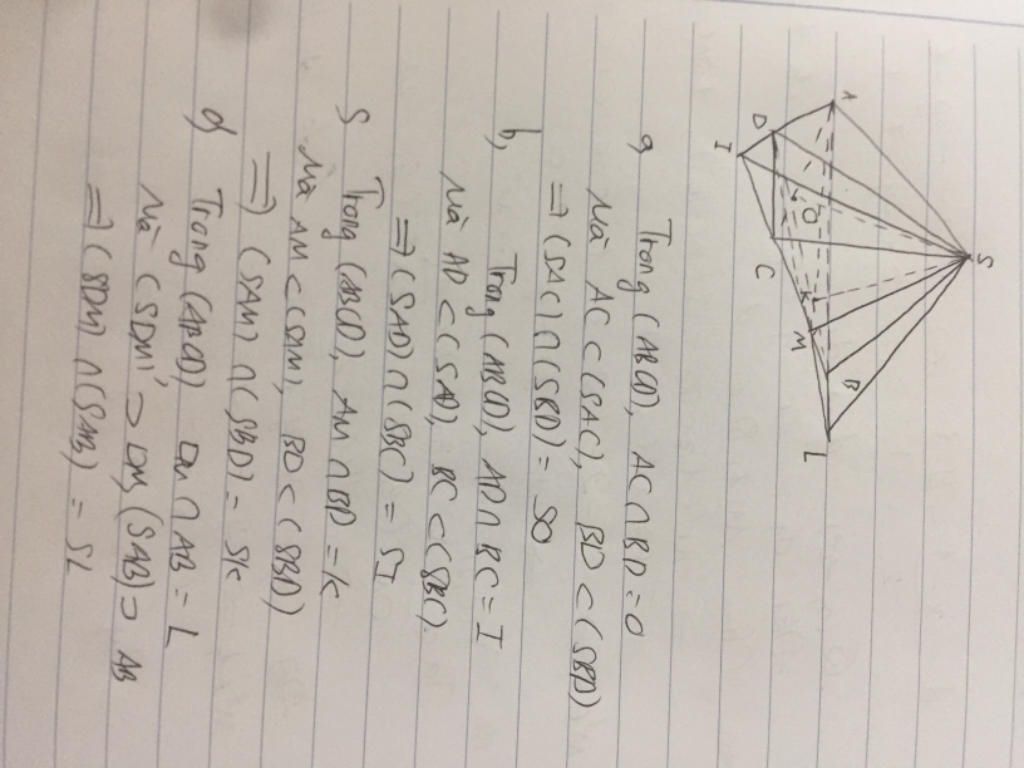 S
A
D
I
O
C
K
M
B
L
a, Trong (ABCD), AC ∩ BD = O
Mà AC ⊂ (SAC), BD ⊂ (SBD)
⇒ (SAC) ∩ (SBD) = SO
b, Trong (ABCD), AD ∩ BC = I
Mà AD ⊂ (SAD), BC ⊂ (SBC)
⇒ (SAD) ∩ (SBC) = SI
Trong (ABCD), AM ∩ BD = K
Mà AM ⊂ (SAM), BD ⊂ (SBD)
⇒ (SAM) ∩ (SBD) = SK
d) Trong (ABCD) DM ∩ AB = L
Mà (SDM) ⊃ DM, (SAB) ⊃ AB
⇒ (SDM) ∩ (SAB) = SL